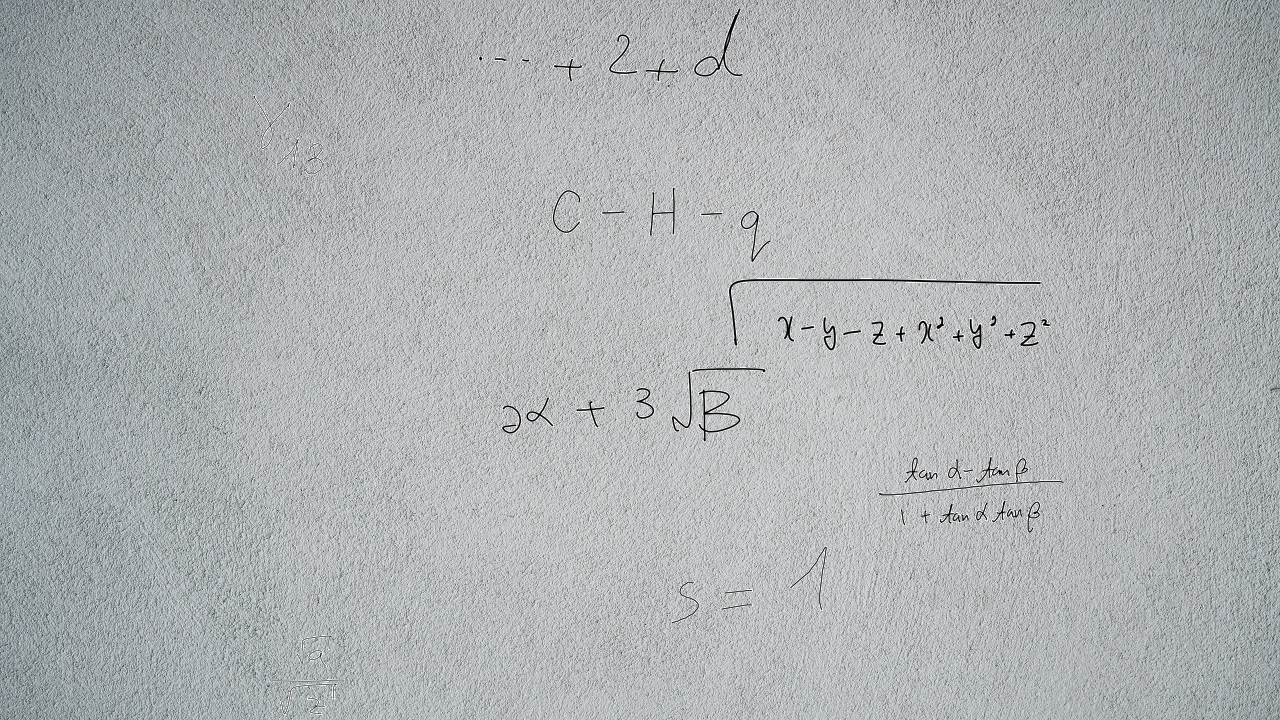 ... + 2 + d
γ₁₃
C - H - q
√(x - y - z + x² + y³ + z²)
2α + 3√B
(tan α - tan β) / (1 + tan α tan β)
s = 1